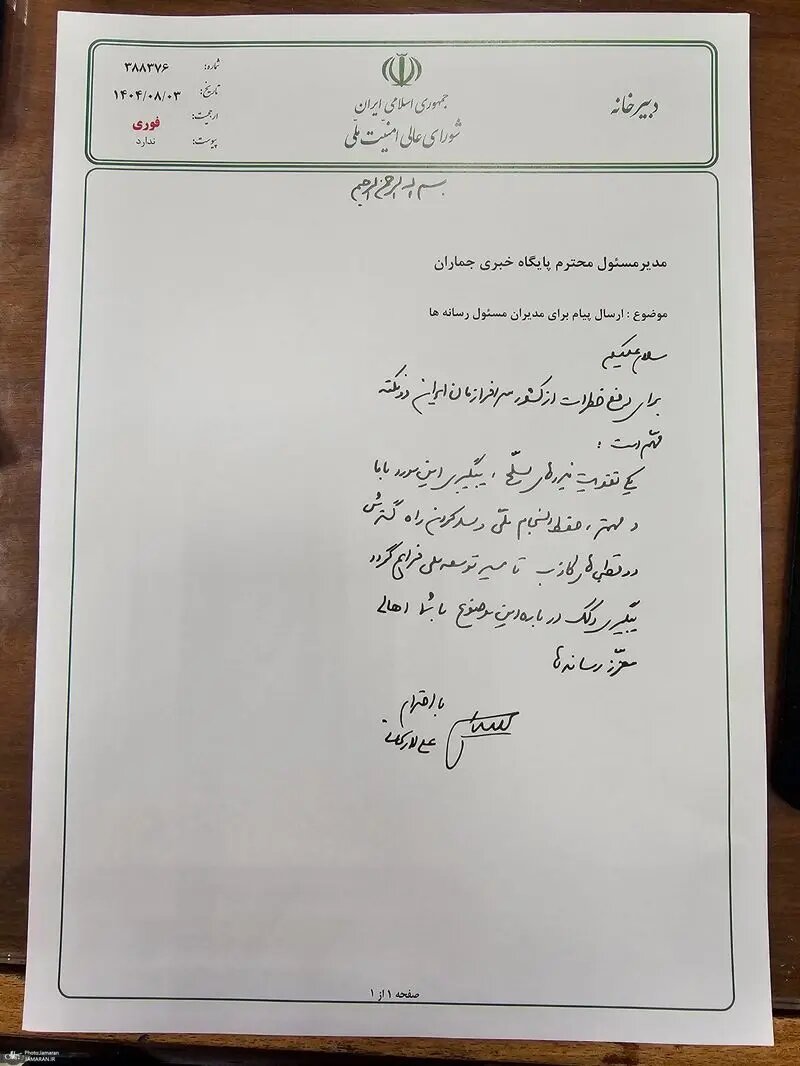 دبیرخانه
جمهوری اسلامی ایران
شورای عالی امنیّت ملّی
شماره: ۳۸۸۳۷۶
تاریخ: ۱۴۰۴/۰۸/۰۳
ارجحیت: فوری
پیوست: ندارد
بسم الله الرحمن الرحیم
مدیرمسئول محترم پایگاه خبری جماران
موضوع : ارسال پیام برای مدیران مسئول رسانه ها
سلام علیکم
برای رفع خطرات از کشور سرافرازمان ایران دو نکته
مهّم است :
یکی تقویت نیروهای مسلّح ، پیگیری این مورد با ما
و مهمتر ، حفظ انسجام ملّی و سد کردن راه گسترش
دو قطبی‌های کاذب تا مسیر توسعه ملی فراهم گردد
پیگیری و کمک در باره این موضوع با شما اهالی
معزّز رسانه‌ها
با احترام
علی لاریجانی
صفحه ۱ از ۱
Photo:Jamaran
JAMARAN.IR